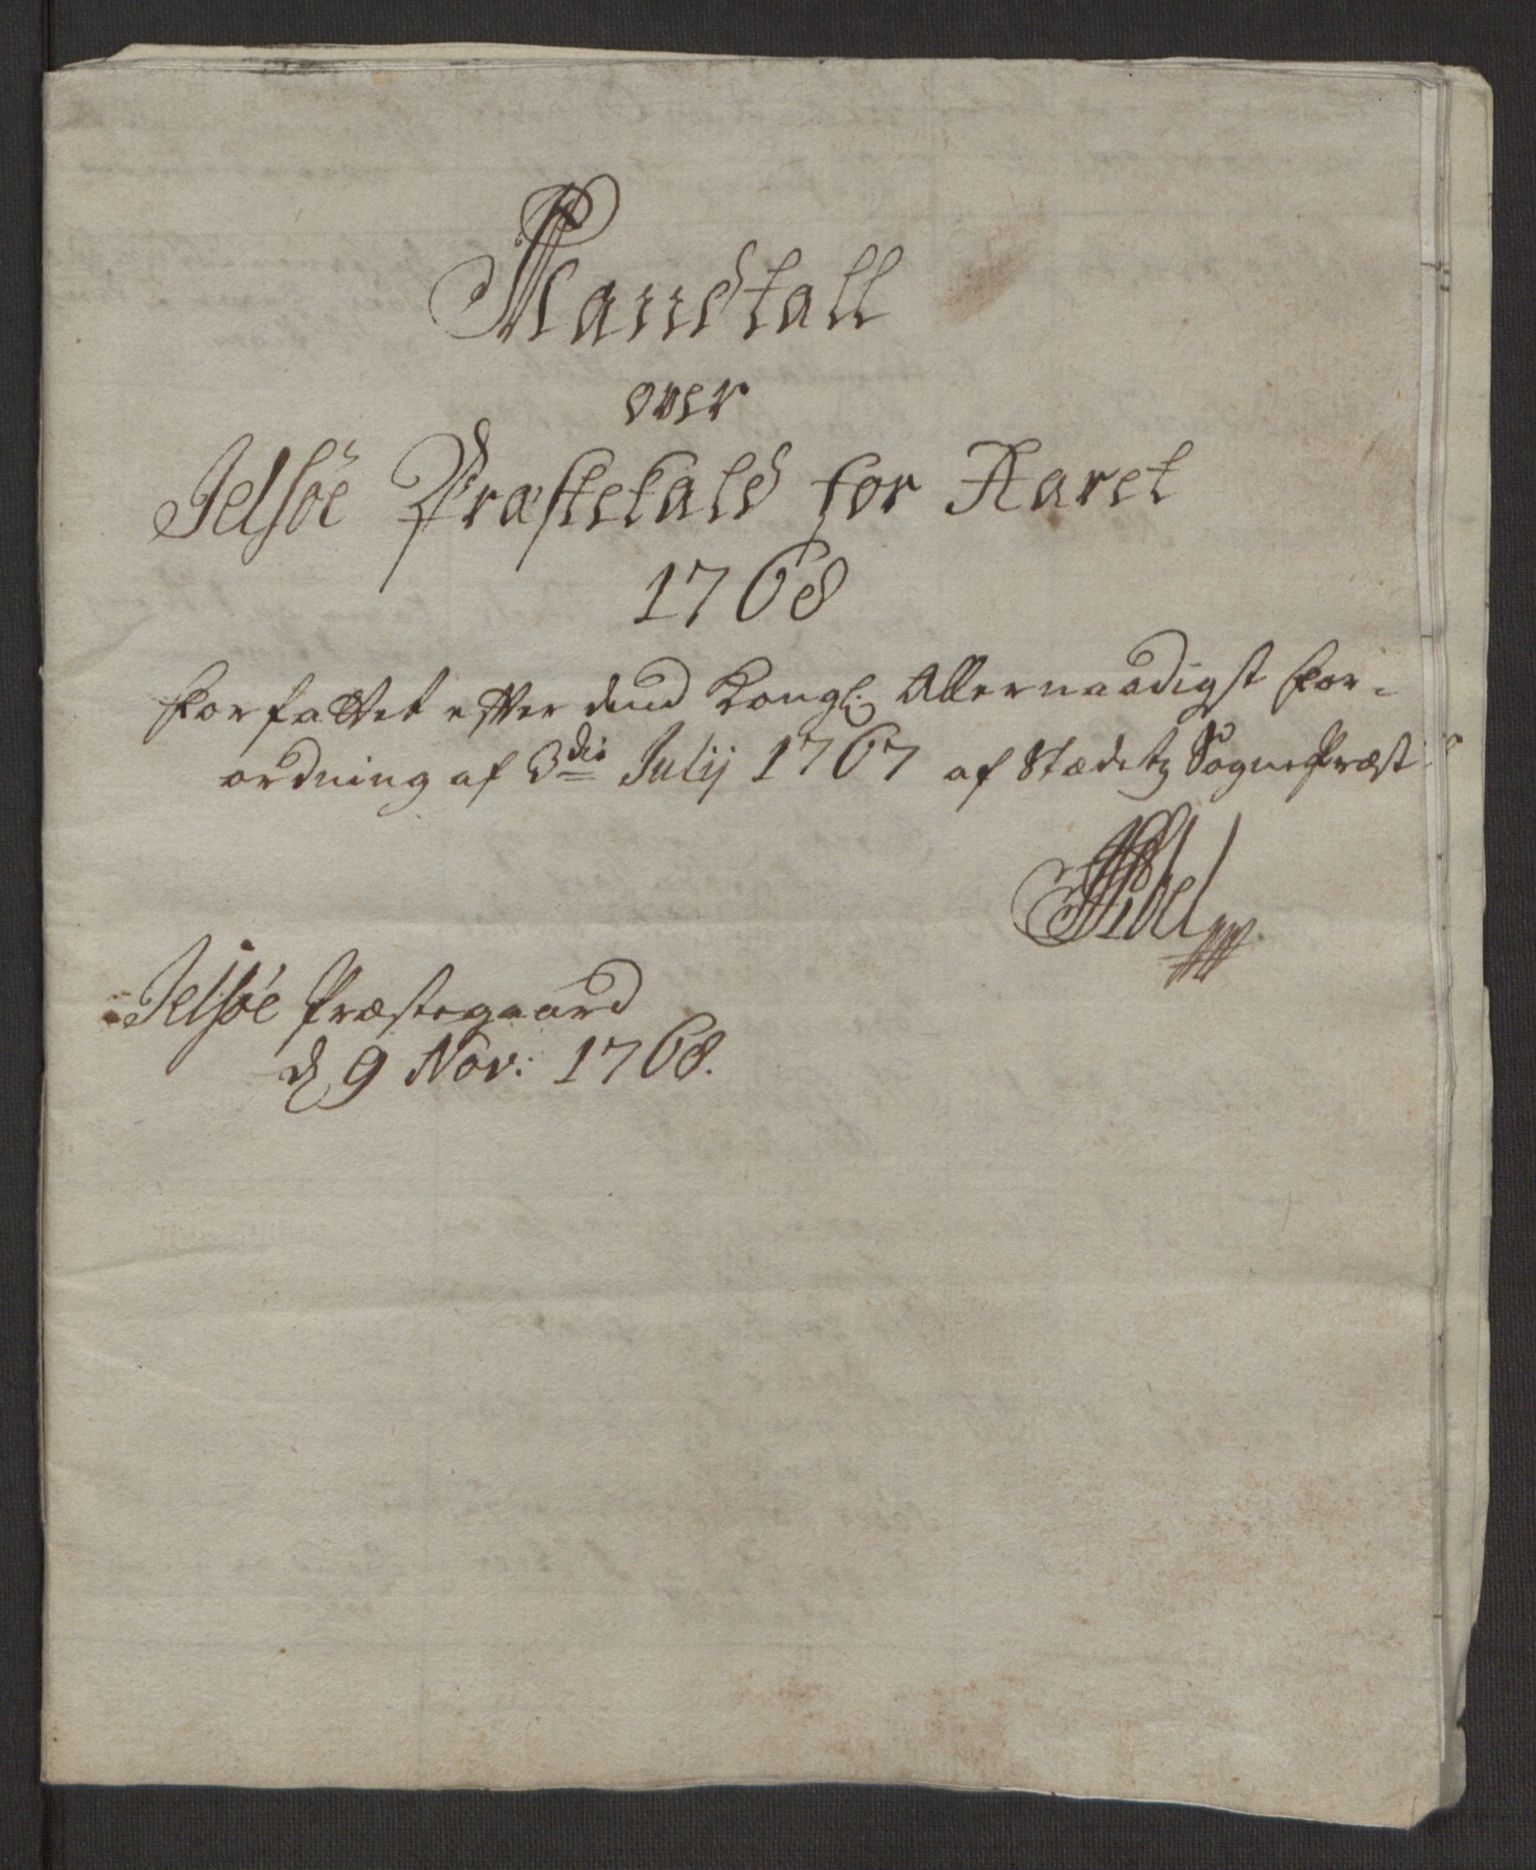 Mandtall
over
Jelsöe Præstekald for Aaret
1768
forfattet efter dend Kongl: Allernaadigst for-
ordning af 3die Julij 1767 af Stædetz Sogne Præst
Jelsöe Præstegaard
d 9 Nov: 1768.